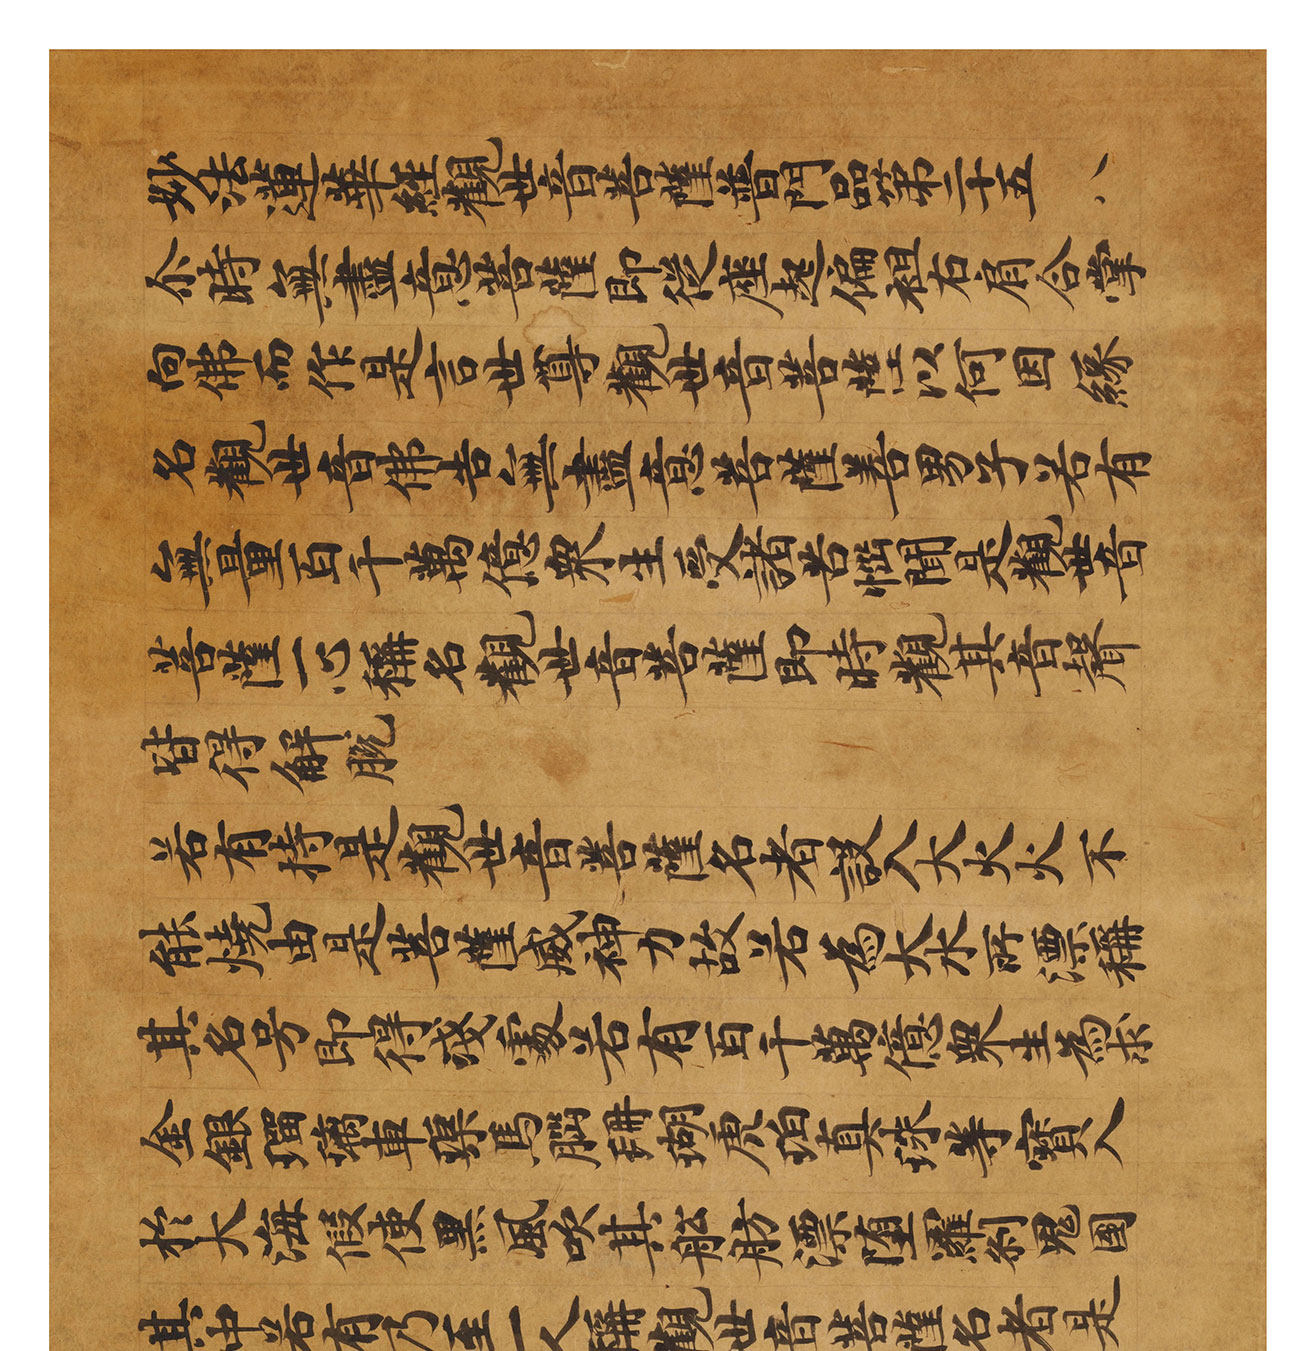 妙法蓮華經觀世音菩薩普門品第二十五 八
尒時無盡意菩薩即從座起偏袒右肩合掌
向佛而作是言世尊觀世音菩薩以何因緣
名觀世音佛告無盡意菩薩善男子若有
無量百千萬億衆生受諸苦惱聞是觀世音
菩薩一心稱名觀世音菩薩即時觀其音聲
皆得解脫
若有持是觀世音菩薩名者設入大火火不
能燒由是菩薩威神力故若為大水所漂稱
其名号即得淺處若有百千萬億衆生為求
金銀瑠璃車璖馬腦珊瑚虎珀真珠等寶入
於大海假使黑風吹其舩舫漂墮羅剎鬼國
其中若有乃至一人稱觀世音菩薩名者是